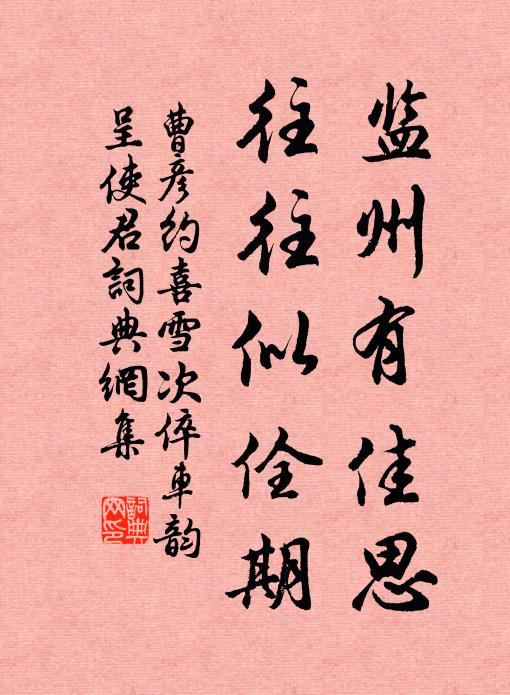 监州有佳思
往往似佺期
曹彦约喜雪次倅車韵
呈使君詞典網集
詞典网印